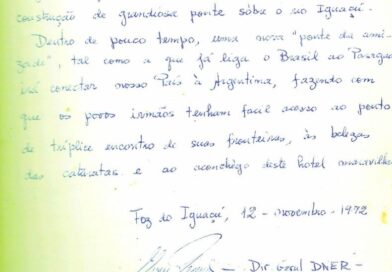 construção de grandiosa ponte sôbre o rio Iguaçú.
Dentro de pouco tempo, uma nova "ponte da ami-
zade", tal como a que já liga o Brasil ao Paragua
irá conectar nosso País à Argentina, fazendo com
que os povos irmãos tenham facil acesso ao ponto
de tríplice encontro de suas fronteiras, às belezas
das cataratas e ao aconchêgo deste hotel maravilho
Foz do Iguaçú, 12 - novembro - 1972
— Dir Geral DNER -